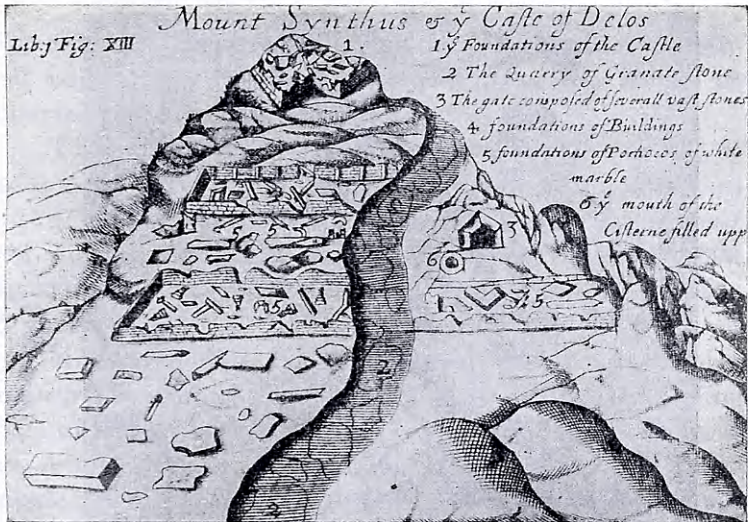 Mount Synthus & yͤ Castle of Delos
Lib:j Fig: XIII
1.
1 yͤ Foundations of the Castle
2 The Quarry of Granate stone
3 The gate composed of severall vast stones
4 foundations of Buildings
5 foundations of Porticoes of white
marble
6 yͤ mouth of the
Cisterne filled upp
5
5
5
3
6
5
5
2
2